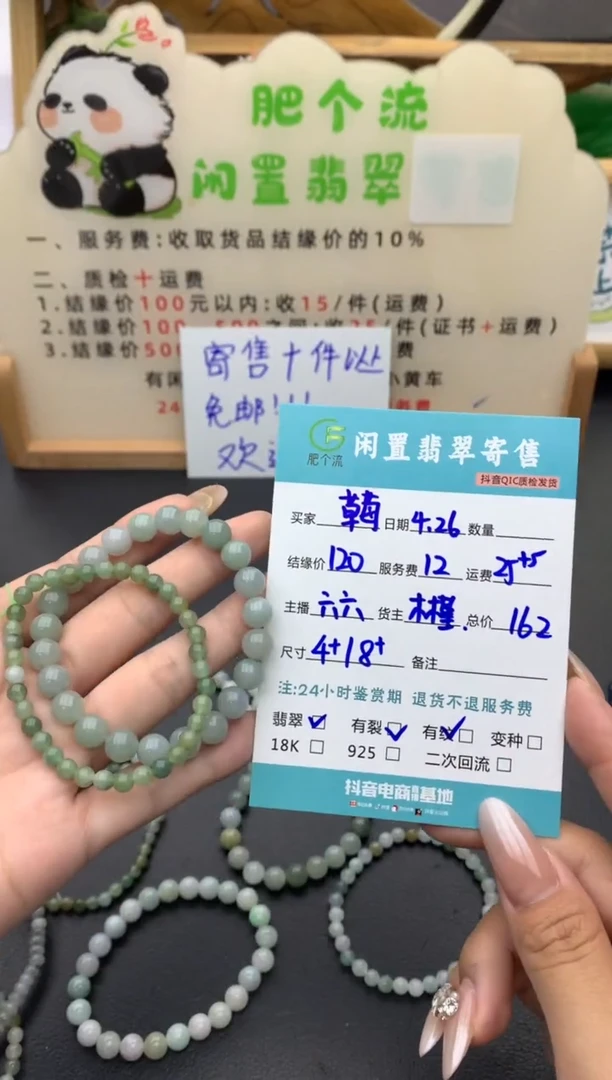 肥个流
闲置翡翠
一、服务费:收取货品结缘价的10%
二、质检+运费
1.结缘价100元以内:收15/件(运费)
2.结缘价100 件(证书+运费)
3.结缘价50 费
寄售十件以上
免邮!!!
有闲 小黄车
24
欢
肥个流
闲置翡翠寄售
抖音QIC质检发货
买家 日期4.26 数量
结缘价120 服务费12 运费25+5
主播六六 货主 总价162
尺寸4+18+ 备注
注:24小时鉴赏期 退货不退服务费
翡翠 有裂 有纹 变种
18K 925 二次回流
抖音电商直播基地